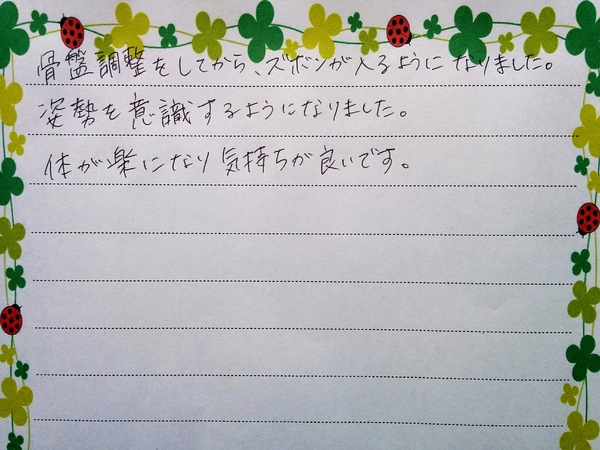 骨盤調整をしてから、ズボンが入るようになりました。
姿勢を意識するようになりました。
体が楽になり気持ちが良いです。